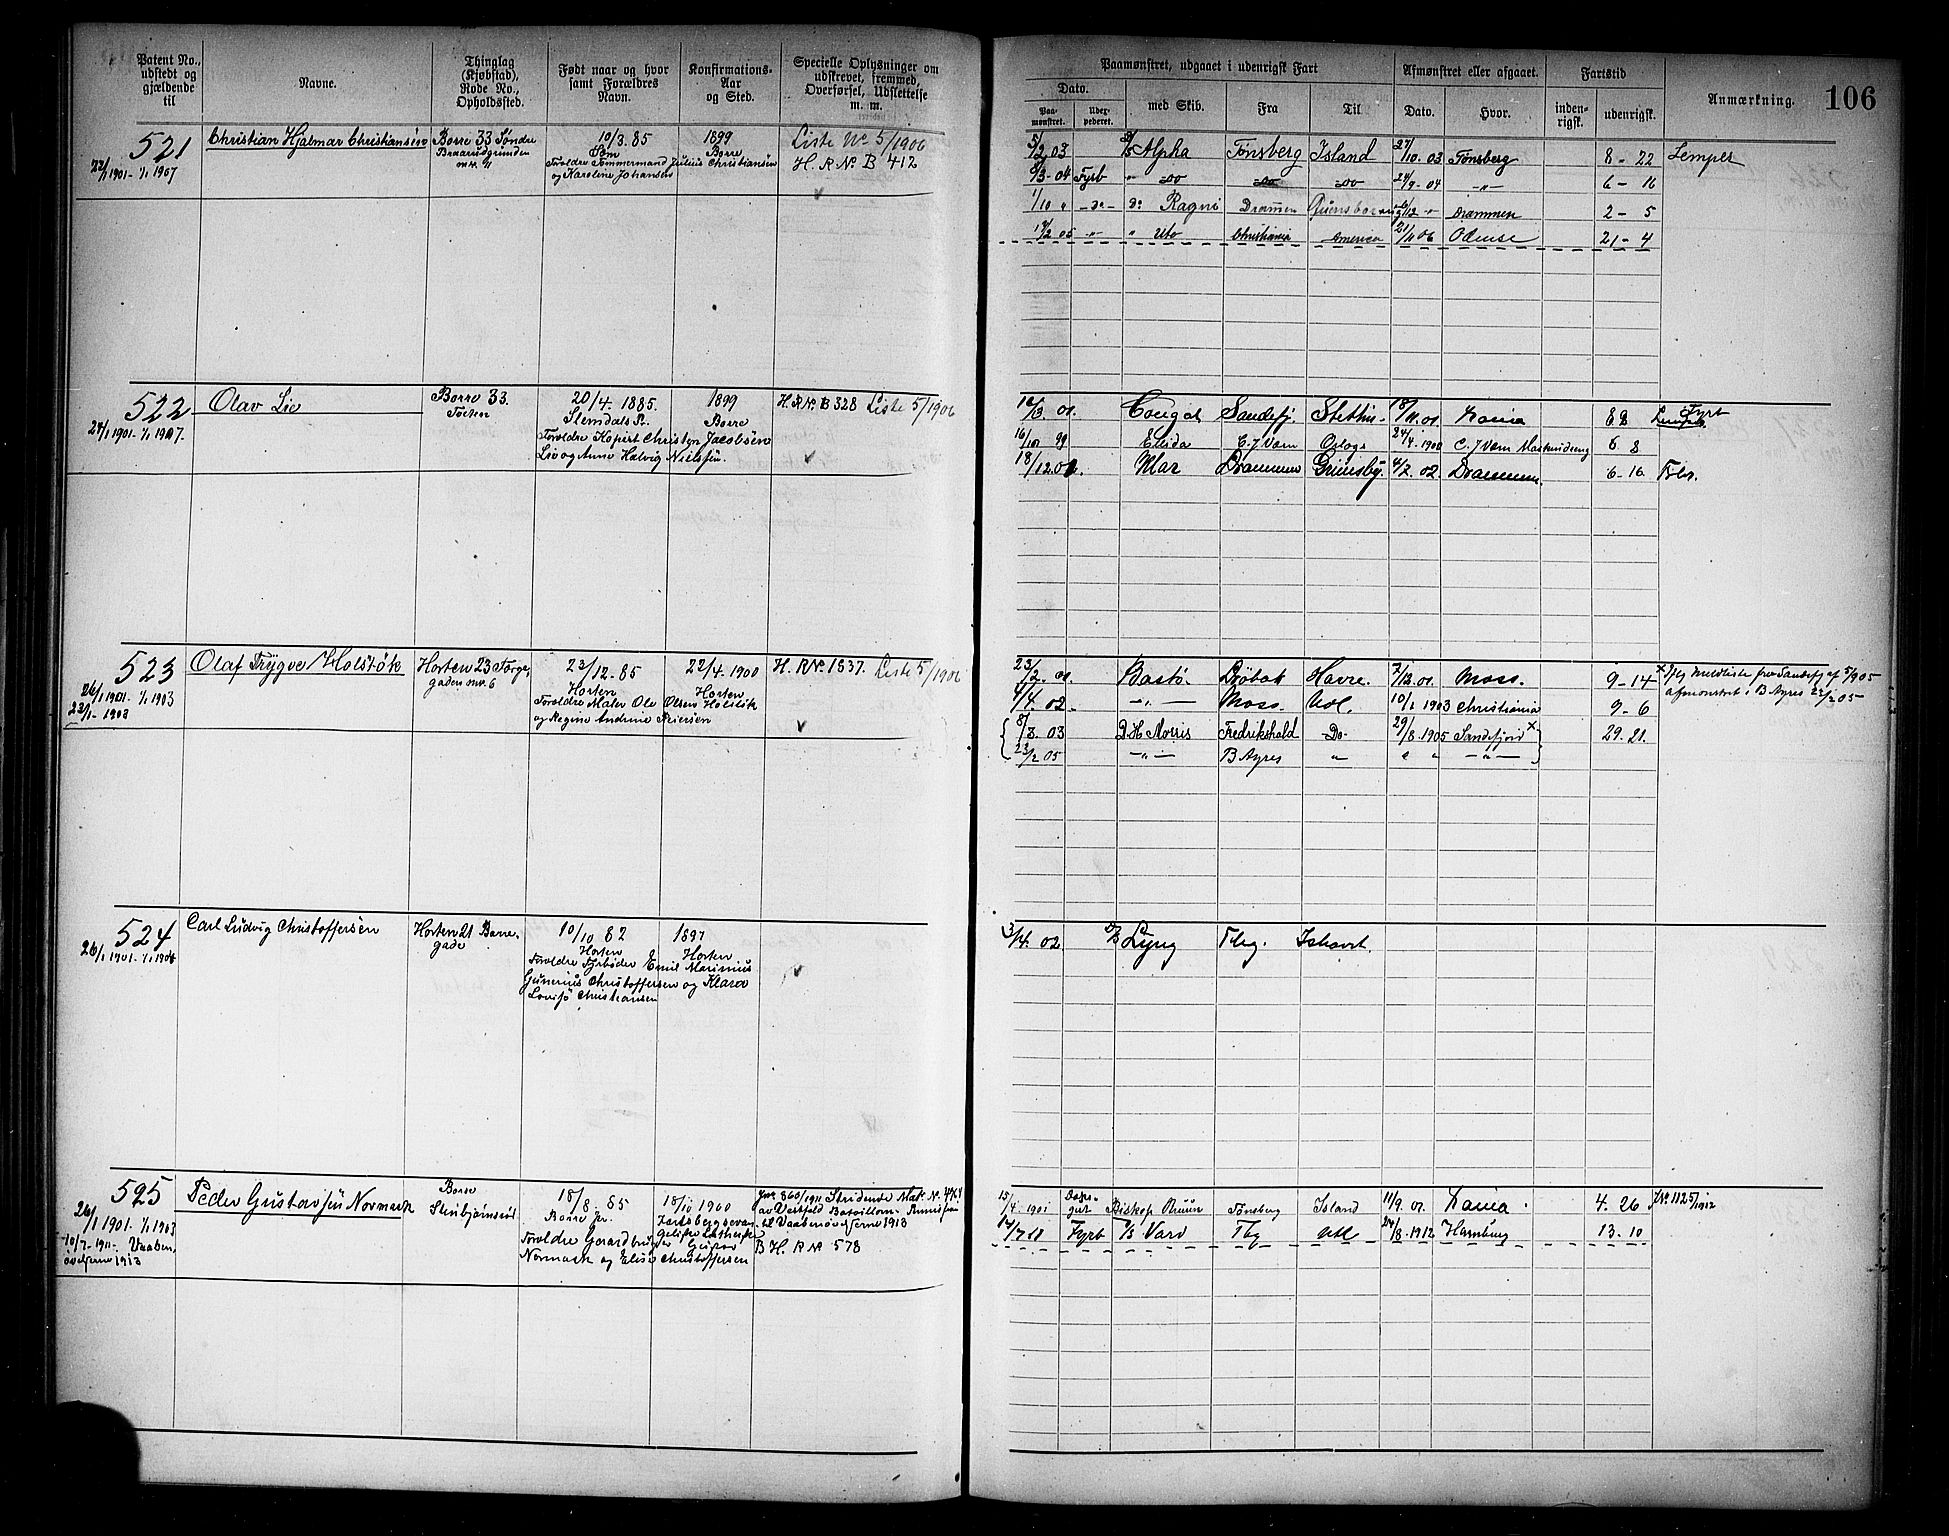 Patent No.,
udstedt og
gjældende
til
Navne.
Thinglag
(Kjøbstad),
Rode No.,
Opholdssted.
Født naar og hvor
samt Forældres
Navn.
Konfirmations-
Aar
og Sted.
Specielle Oplysninger om
udskrevet, fremmed,
Overførsel, Udslettelse
m. m.
Paamønstret, udgaaet i udenrigsk Fart
Dato.
Paa-
mønstret.
Uder-
pederet.
med Skib.
Fra
Til
Afmønstret eller afgaaet.
Dato.
Hvor.
Fartstid
inden-
rigsk.
udenrigsk.
Anmærkning.
106
521
22/1 1901 - 1/1 1907
Christian Hjalmar Christiansen
Borre 33 Søndre
Braarudgrunden
10/3. 85
Søm
Forældre Tømmermand Julius Christiansen
og Karoline Johansen
1899
Borre
Liste No 5/1906
H. R No B 412
5/2 03 Alpha Tønsberg Island 27/10. 03 Tønsberg 8 - 22 Lemper
9/3 - 04 Fyrb " do do do 24/9 - 04 - " - 6 - 16
1/10 " - do - Ragni Drammen Drammen 2 - 5
05 - " - " Uto Christiania America 21/11 06 Odense 21 - 4
522
24/1 1901 - 1/1 1907.
Olav Lie
Borre 33.
20/4. 1885.
Slemdals Pr.
Forældre Christyn Jacobsen
Lie og Anne Helvig Nielsen.
1899
Borre
H. R No B 328 Liste 5/1906
Cougal Sandefj. Stettin 18/11. 01. 8 8 Fyrb
Elida C. J Værn Oslogs 24/4 - 1900 C. J Værn 6 8
18/12. 01 Klar Drammen Grimsby. 4/2. 02. Drammen. 6 - 16
523
26/1 1901 - 1/1 1903
23/1 - 1903
Olaf Trygve Holsbøk
Horten 23 Torge,
gaden nr. 6
23/12 - 85
Horten
Forældre Maler Ole Olsen Holsbøk
og Regine Andrine Reiersen
22/4. 1900
Horten
H. R No. 1337. Liste 5/1906
23/2. 01. Bastø. Drøbak Havre. 7/12. 01. Moss. 9 - 14
4/4. 02. - " - Moss. Udl. 10/1 1903 Christiania 9 - 6
8/8. 03 D. H Morris Fredrikshald Do - 29/8. 1905 Sandefjord x 29. 21.
23/2 05 - " - B Ayres " " " - " -
x Ifg meldliste fra Sandefj af 5/9 05
afmønstret i B Ayres 22/2 05 -
524
26/1 1901. - 1/1 1906
Carl Ludvig Christoffersen
Horten 21 Borre-
gade
10/10 82
Horten
Forældre Fyrbøder Emil Marinius
Gunerius Christoffersen og Klara
Lovise Christiansen
1897
Horten
3/4. 02 Lyng Tbg. Ishavet.
525
26/1 1901. 1/1 1903
10/7 - 1911 - Vaaben,
øvelserne 1913
Peder Gustavsen Normark
Borre
18/8. 85
Borre pr.
Forældre Gaardbruger Gustav
Normark og Elise Christoffersen
18/10 1900
B H. R No 578
15/4 1901 Biskop Bruun Tønsberg Island 11/9. 01. 4. 26 No 1125/1912
Fyrb Vard Tbg Udl 24/8. 1912 Hamburg 13 - 10